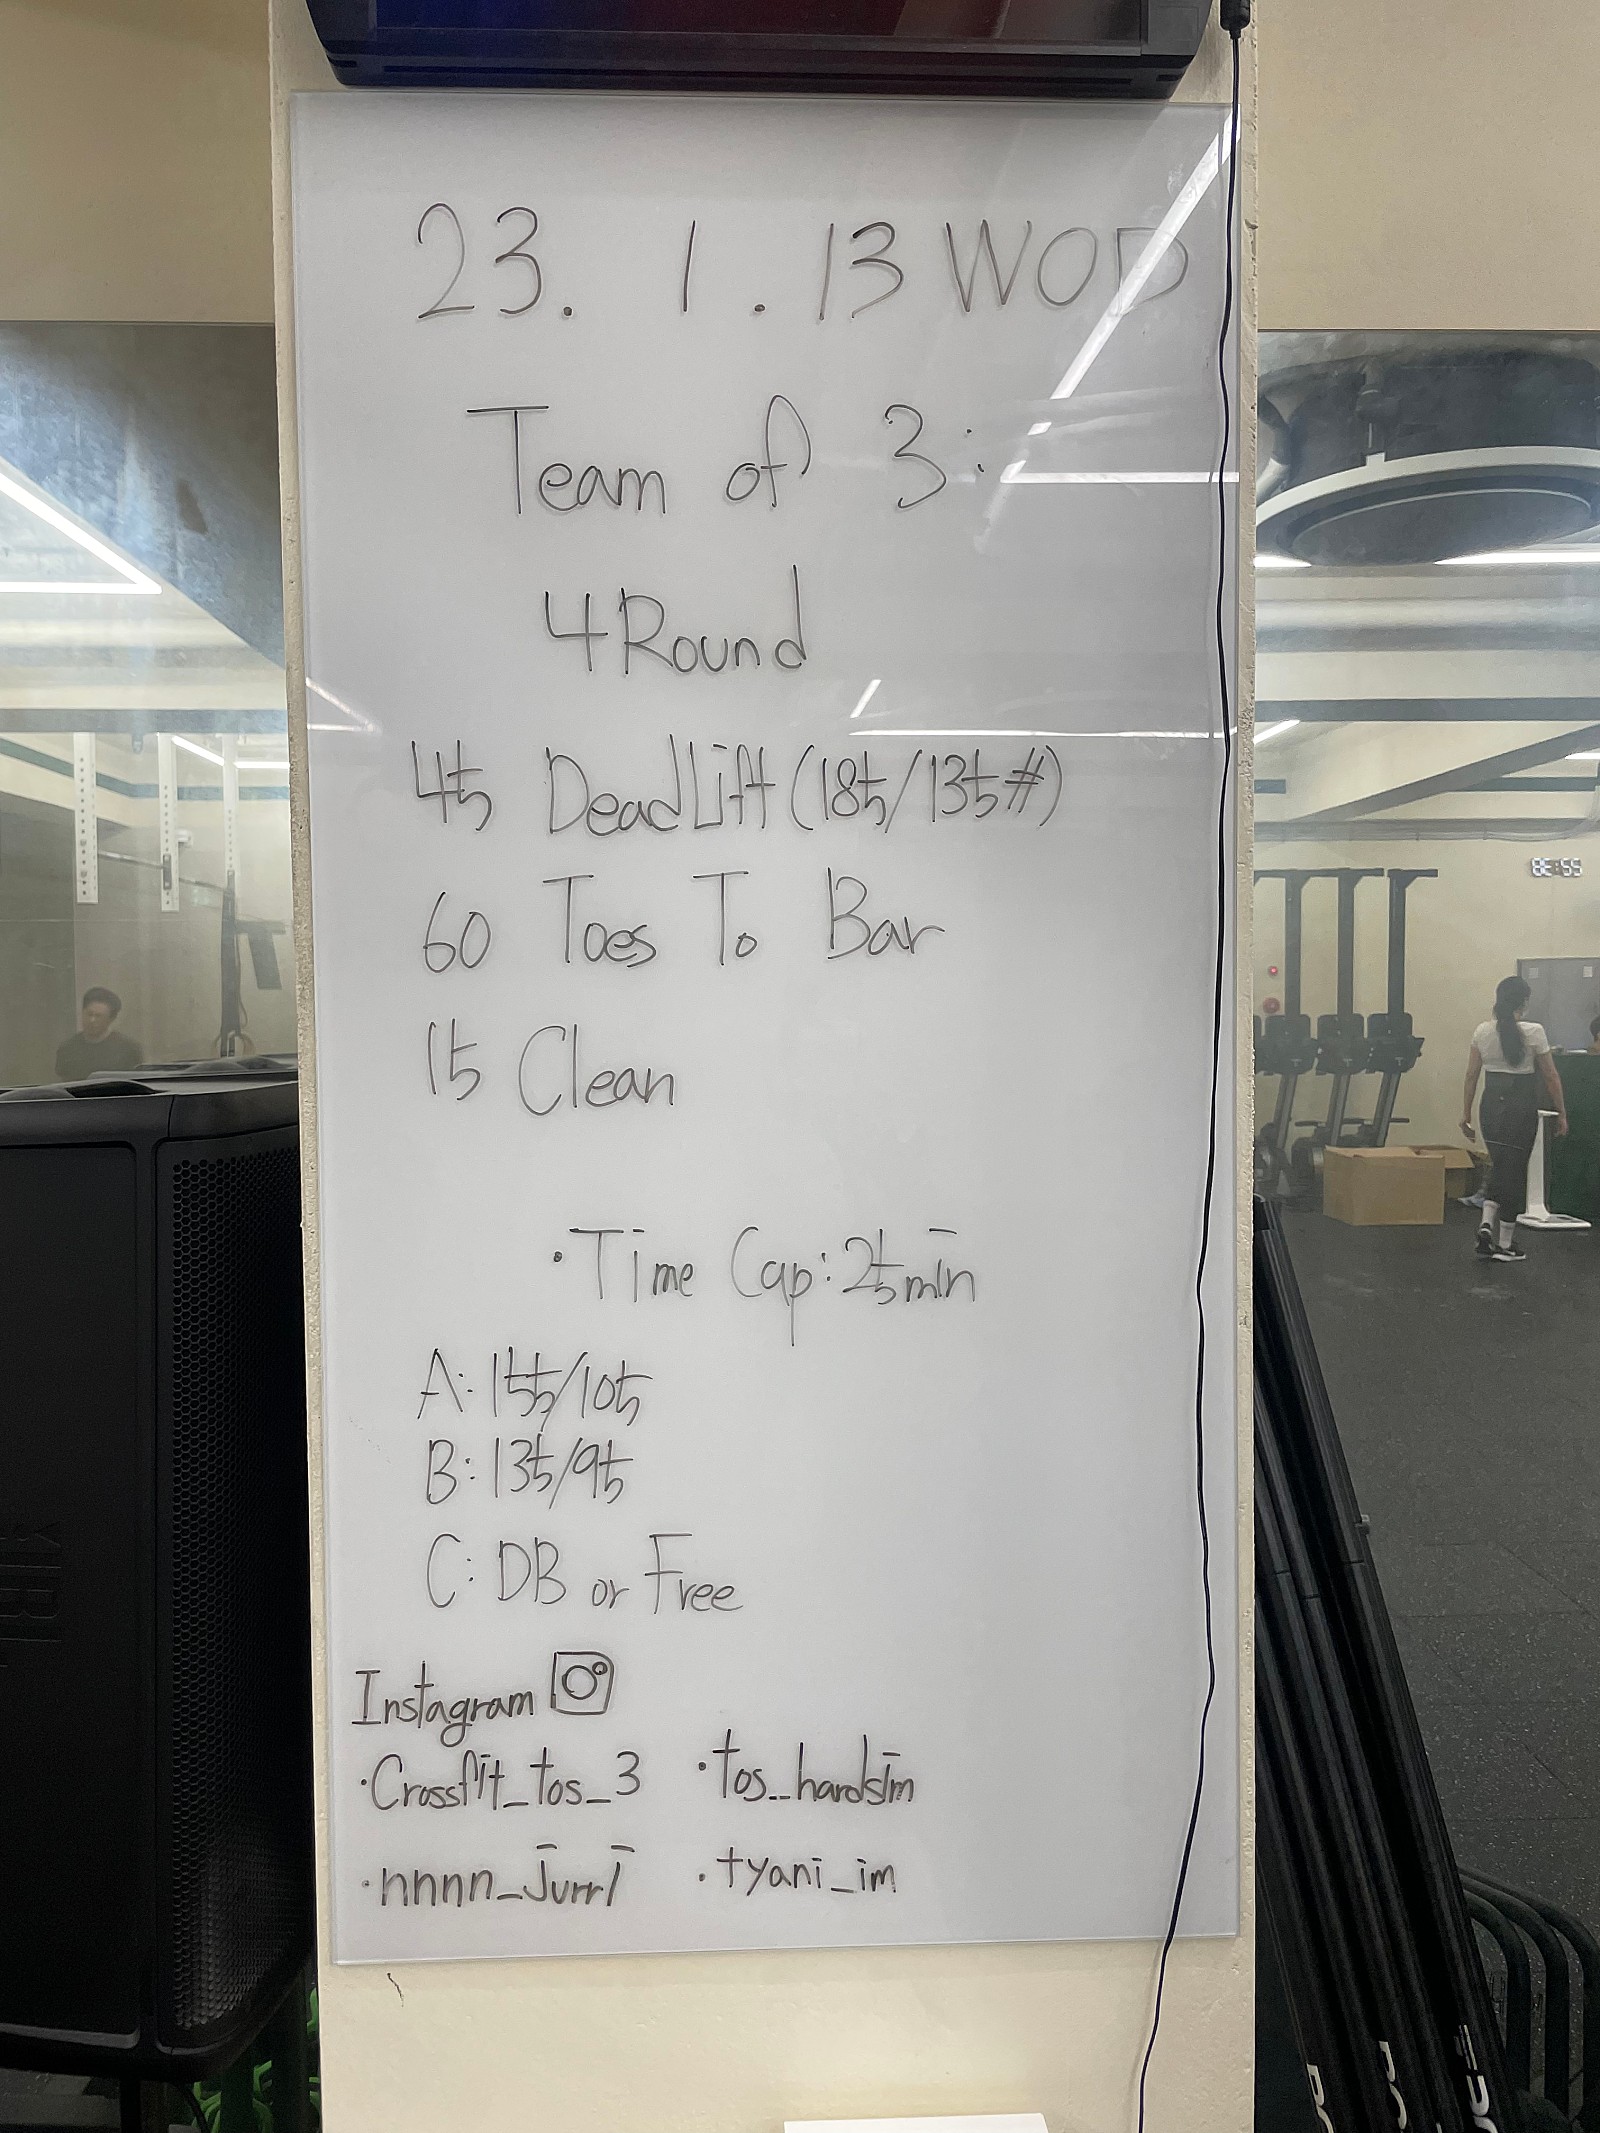 23. 1. 13 WOD
Team of 3:
4 Round
45 DeadLift (185/135#)
60 Toes To Bar
15 Clean
· Time Cap: 25min
A: 155/105
B: 135/95
C: DB or Free
Instagram
· Crossfit_tos_3 · tos_hardsim
· nnnn_jurri · tyani_im